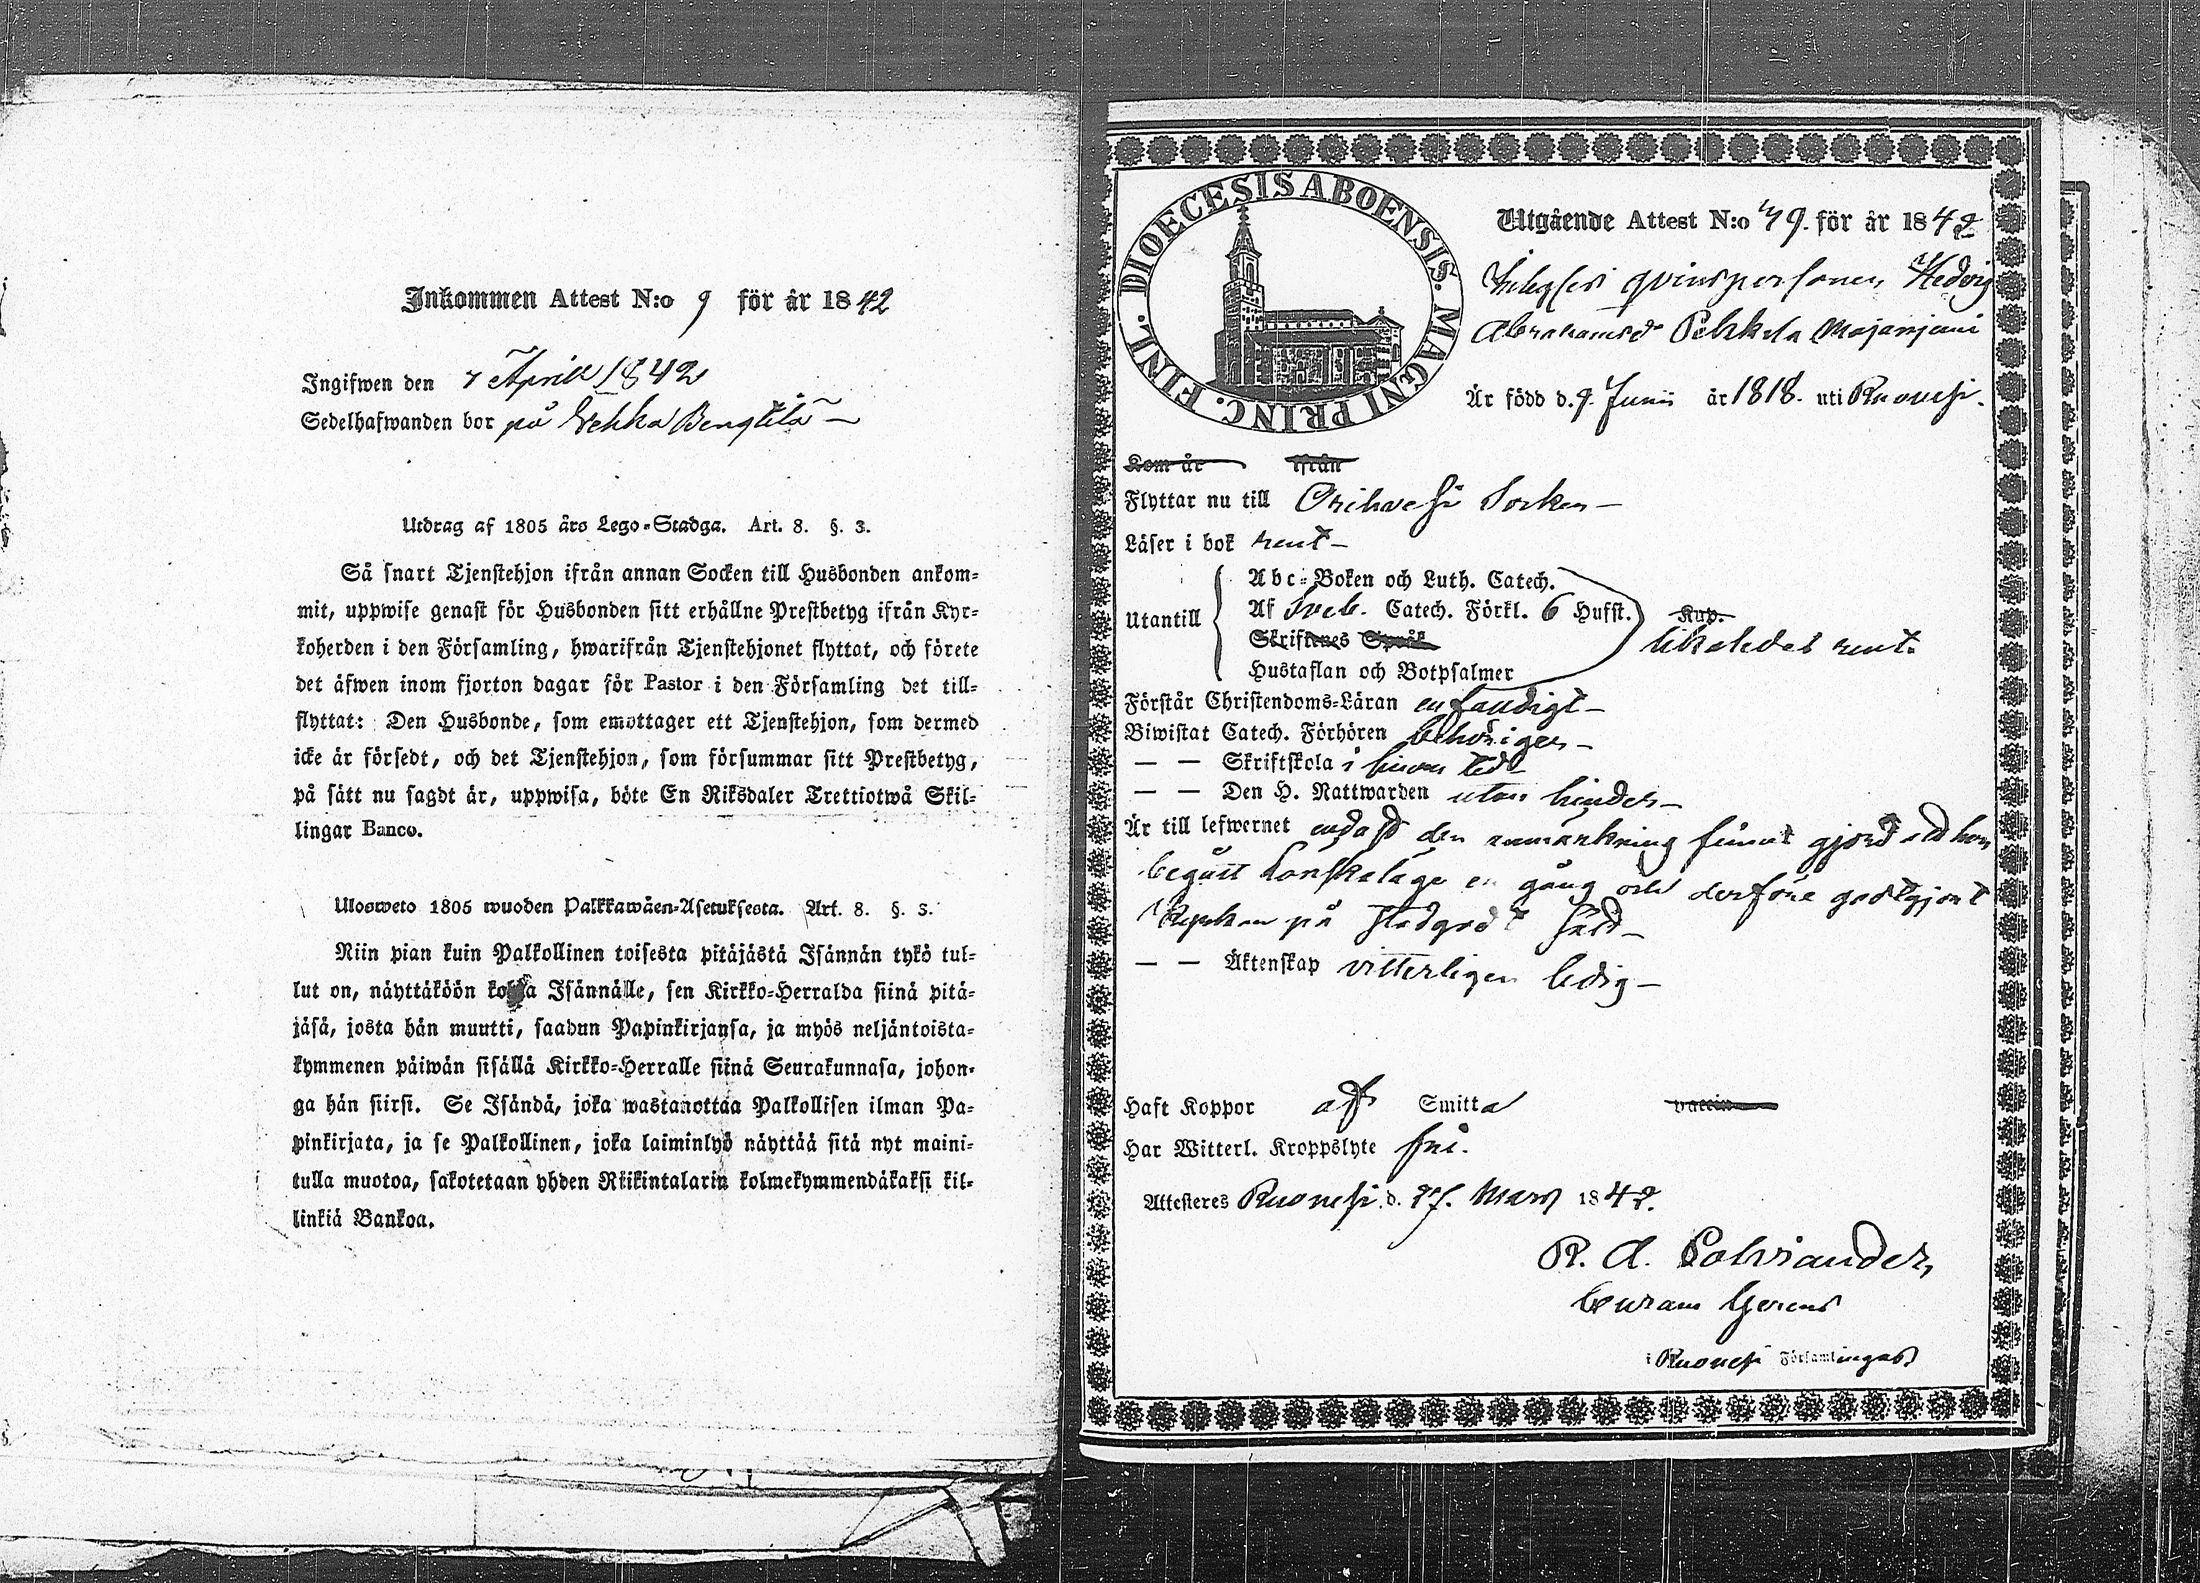 Inkommen Attest N:o 9 för år 1842
Ingifwen den 7 April 1842
Sedelhafwanden bor på Wehka Bengtilä –
Utdrag af 1805 års Lego-Stadga. Art. 8. §. 3.
Så snart Tjenstehjon ifrån annan Socken till Husbonden ankom-
mit, uppwise genast för Husbonden sitt erhållne Prestbetyg ifrån Kyr-
koherden i den Församling, hwarifrån Tjenstehjonet flyttat, och förete
det äfwen inom fjorton dagar för Pastor i den Församling det till-
flyttat: Den Husbonde, som emottager ett Tjenstehjon, som dermed
icke är försedt, och det Tjenstehjon, som försummar sitt Prestbetyg,
på sätt nu sagdt är, uppwisa, böte En Riksdaler Trettiotwå Skil-
lingar Banco.
Ulosweto 1805 wuoden Palkkawäen-Asetuksesta. Art. 8. §. 3.
Niin pian kuin Palkollinen toisesta pitäjästä Isännän tykö tul-
lut on, näyttäköön kohta Isännälle, sen Kirkko-Herralda siinä pitä-
jäsä, josta hän muutti, saadun Papinkirjansa, ja myös neljäntoista-
kymmenen päiwän sisällä Kirkko-Herralle siinä Seurakunnasa, johon-
ga hän siirsi. Se Isändä, joka wastanottaa Palkollisen ilman Pa-
pinkirjata, ja se Palkollinen, joka laiminlyö näyttää sitä nyt maini-
tulla muotoa, sakotetaan yhden Riikintalarin kolmekymmendäkaksi kil-
linkiä Bankoa.
DIOECESIS ABOENSIS. MAGNI PRINC. FINL.
Utgående Attest N:o 49. för år 1842
qvinspersonen Hedvig
Abrahamsd<sup>r</sup> Pelkola Majanjemi
Är född d. 9. Junii år 1818. uti Ruovesi.
Kom år ifrån
Flyttar nu till Orihvesi Socken –
Läser i bok rent –
Utantill
Abc-Boken och Luth. Catech.
Af Sveb. Catech. Förkl. 6 Hufst. Kap.
Skriftenes Språk likaledes rent.
Hustaflan och Botpsalmer
Förstår Christendoms-Läran enfaudigt –
Biwistat Catech. Förhören behörigen –
— — Skriftskola i sinom tid
— — Den H. Nattwarden utan hinder –
Är till lefwernet endast den anmärkning finnes gjord att hon
begått lönskaläge en gång och derföre godtgjort
Kyrkan på stadgadt sätt –
— — Äktenskap vitterligen ledig –
Haft Koppor af Smitta vaccin
Har Witterl. Kroppslyte fri.
Attesteres Ruovesi d. 27. Mars 1842.
R. A. Polviander,
Curam Gerens
i Ruovesi Församlingar